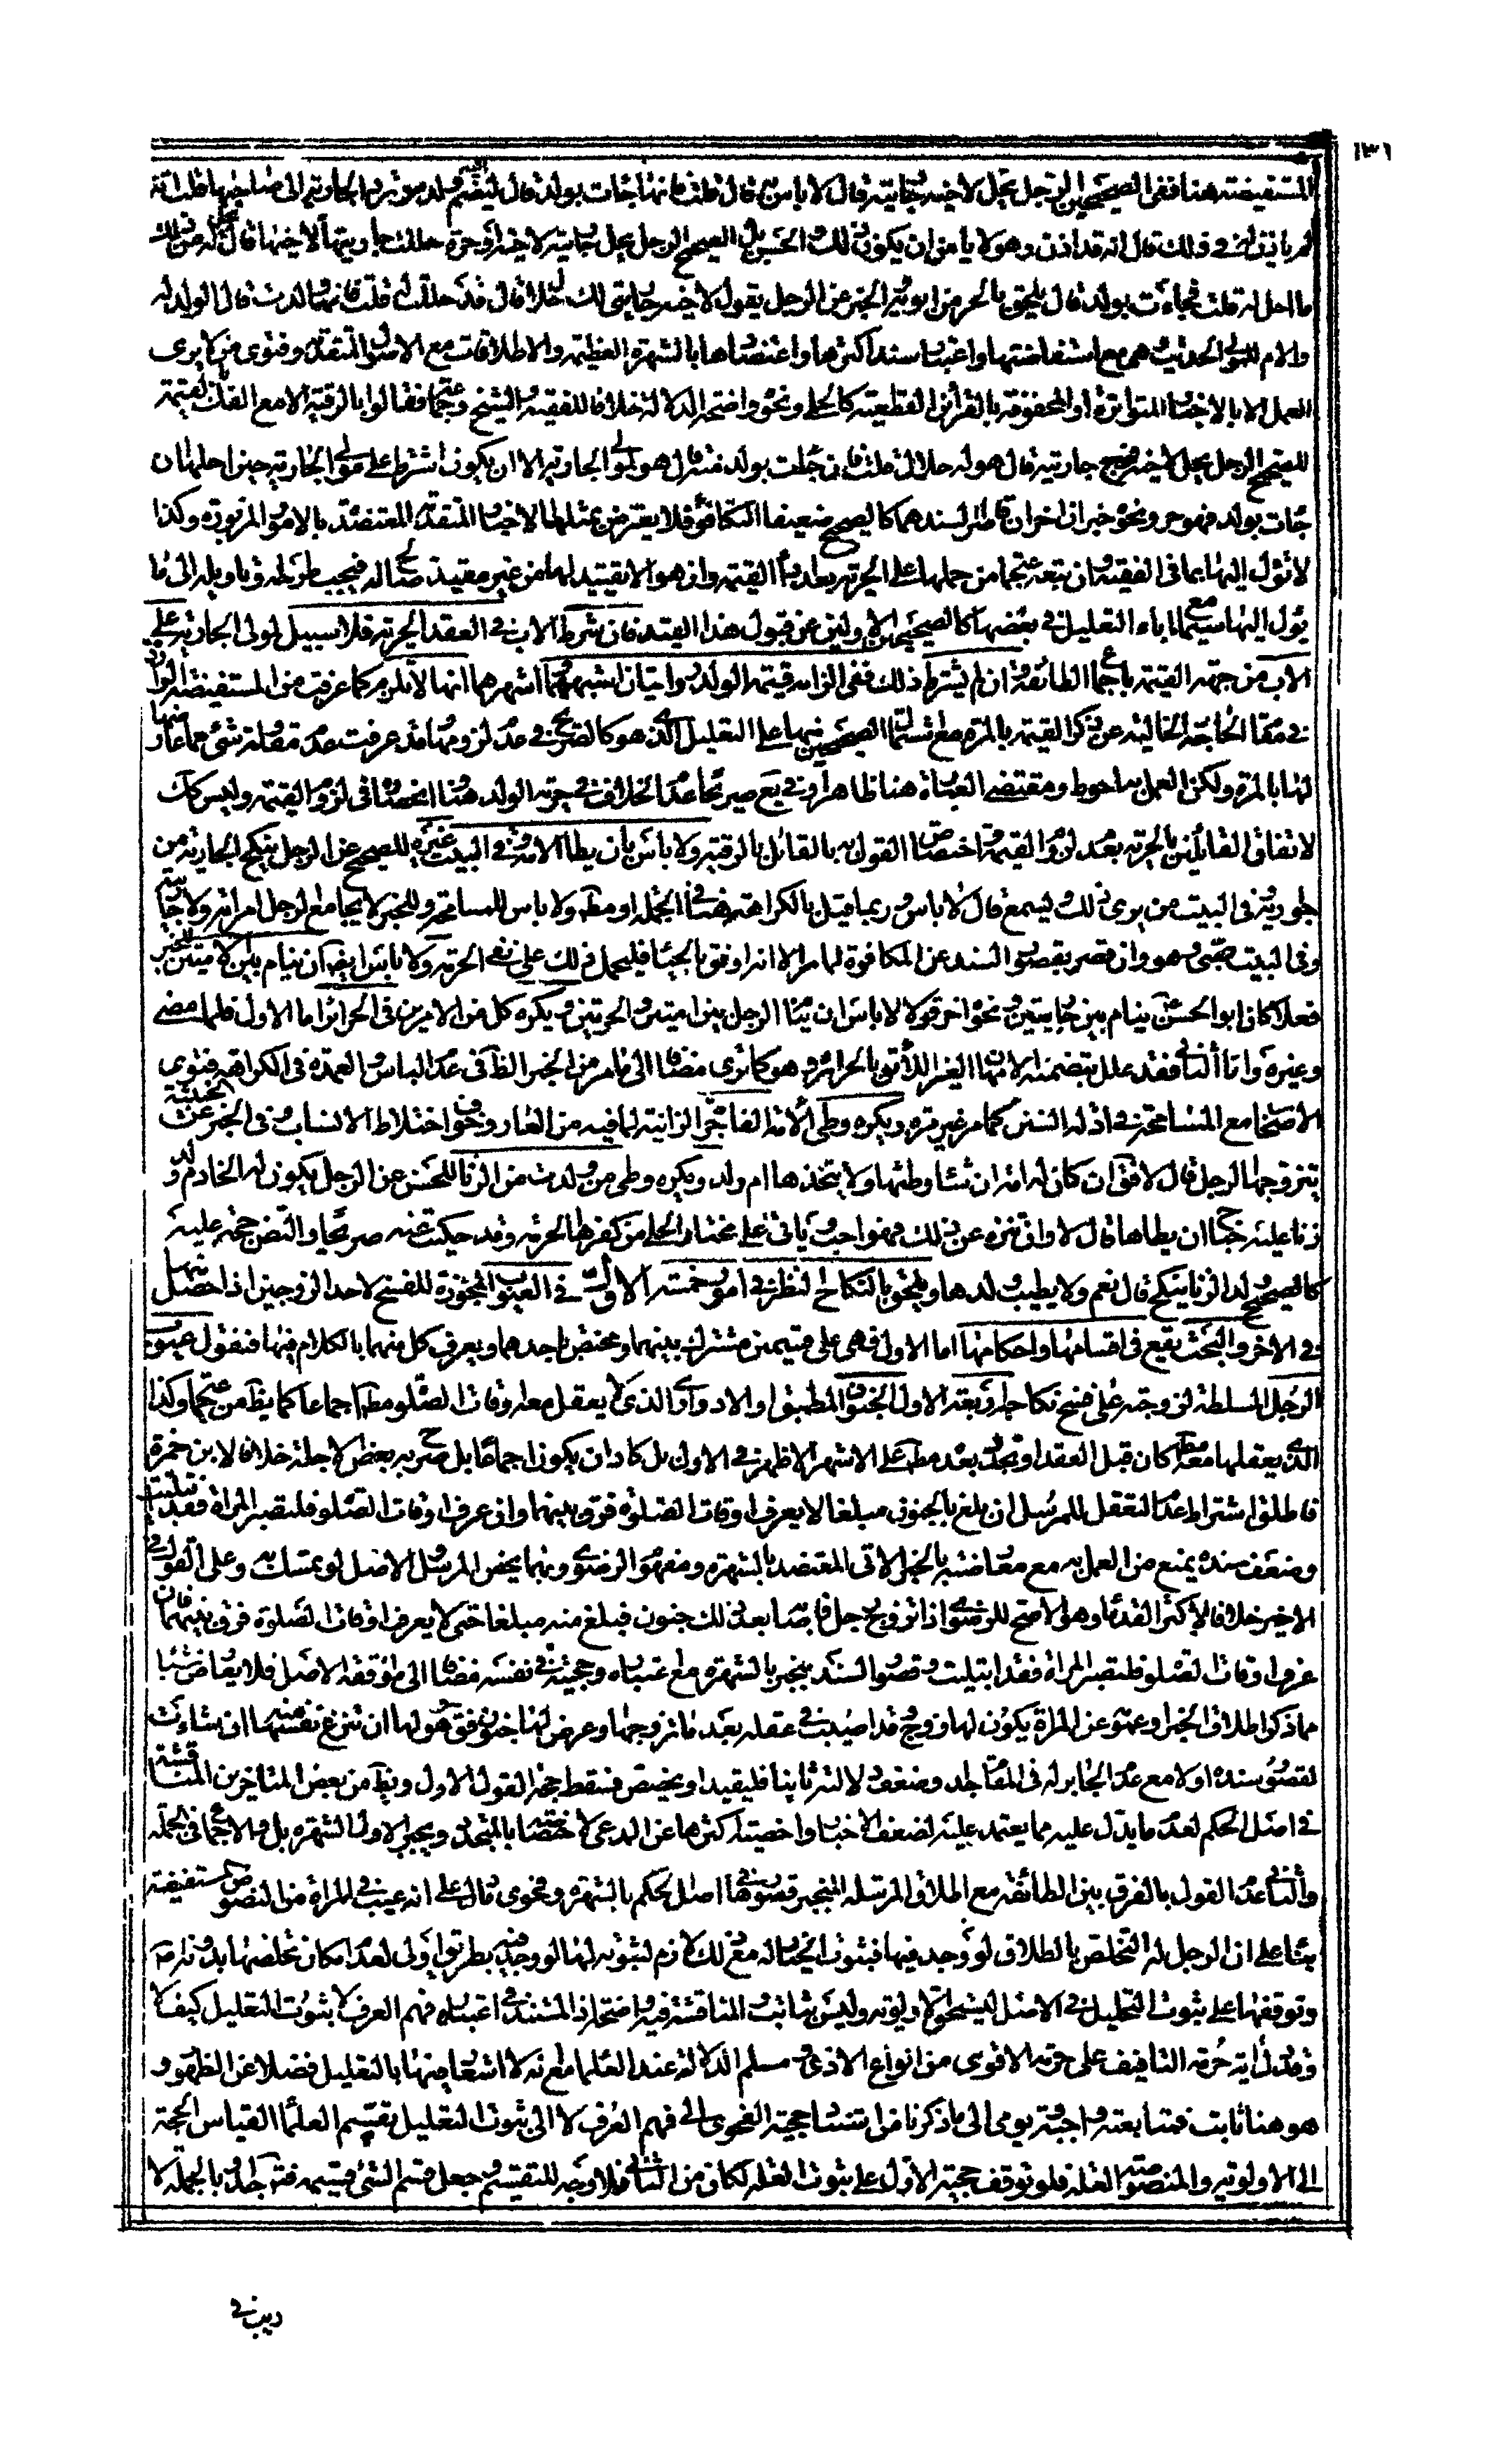 ١٣١
المستفيضة هنا ففي الصحيحين الرجل يحل لاخيه جاريته قال لا باس قال قلت فانها جاءت بولد قال ليضم اليه ولده ويرد الجارية الى صاحبها قلت انه
لم ياذن له في ذلك قال انه قد اذن له وهو لا يامن ان يكون ذلك الحسن بل الصحيح الرجل يحل جاريته لاخيه او حرة حللت جاريتها لاخيها قال يحل له من ذلك
ما احل له قلت فجاءت بولد قال يلحق بالحر من ابويه الخبر عن الرجل يقول لاخيه جاريتي لك حلال قال قد حللت له قلت فانها ولدت قال الولد له
والام للمولى الحديث هي مع استفاضتها واعتبار سند اكثرها واعتضادها بالشهرة العظيمة والاطلاقات مع الاصول المتقدمة وفتوى من لا يرى
العمل الا بالاخبار المتواترة او المحفوفة بالقرائن القطعية كالحلي ونحوه واضحة الدلالة خلافا للفقيه والشيخ وجماعة فقالوا بالرقية الا مع الفك بالقيمة
للصحيح الرجل يحل لاخيه فرج جاريته قال هو له حلال قلت فان جاءت بولد منه قال هو لمولى الجارية الا ان يكون اشترط على مولى الجارية حين احلها ان
جاءت بولد فهو حر ونحوه خبران اخران قاصر السند هما كالصحيح ضعيفا التكافؤ فلا يعترض بمثلها الاخبار المتقدمة المعتضدة بالامور المزبورة وكذا
لا تؤل اليها بما في الفقيه وان تبعه جماعة من حملها على الحرية بعد اداء القيمة وان هو الا تقييد لها من غير مقيد صالح له فيجب طرحه او تاويله الى ما
يؤل اليها مع اباء التعليل في بعضها كالصحيحين الاولين عن قبول هذا القيد فان شرط الاب في العقد الحرية فلا سبيل لمولى الجارية على
الاب من جهة القيمة باجماع الطائفة وان لم يشترط ذلك ففي الزامه قيمة الولد روايتان اشبههما واشهرهما انها لا تلزم كما عرفت من المستفيضة الواردة
في مقام الحاجة الخالية عن ذكر القيمة بالمرة مع اشتمال الصحيحين منها على التعليل الذي هو كالصريح في عدم لزومها وقد عرفت عدم مقاومة شئ مما عارضها
لها بالمرة ولكن العمل بها احوط ومقتضى العبارة هنا ظاهرا وفي يع صريحا عدم الخلاف في حرية الولد هنا وانحصاره في لزوم القيمة وليس كك
لاتفاق القائلين بالحرية بعدم لزوم القيمة واختصاص القول به بالقائل بالرقية ولا باس بان يطا الامة وفي البيت غيره للصحيح عن الرجل ينكح الجارية من
جواريه وفي البيت من يرى ذلك ويسمع قال لا باس وربما قيل بالكراهة هنا في الجملة او مطلقا ولا باس للمسامحة وللخبر لا يجامع الرجل امراته ولا جاريته
وفي البيت صبي وهو وان قصر بقصور السند عن المكافوة لما مر الا انه اوفق بالحياء فليحمل ذلك على نفي الحرمة ولا باس ايضا ان ينام بين الامتين للخبر
فعلا كان ابو الحسن ع ينام بين جاريتين ونحوه اخر قولا لا باس ان ينام الرجل بين امتيه والحرتين ويكره كل من الامرين في الحرائر اما الاول فلما مضى
وغيره واما الثاني فقد علل بتضمنه الامتهان الغير اللائق بالحرائر وهو كما ترى مضافا الى ما مر من الخبر الظاهر في عدم الباس والعمدة في الكراهة فتوى
الاصحاب مع المسامحة في ادلة السنن كما مر غير مرة ويكره وطى الامة الفاجرة الزانية لما فيه من العار وخوف اختلاط الانساب وفي الخبر عن الخبيثة
يتزوجها الرجل قال لا وقال ان كان له امة ان شاء وطئها ولا يتخذها ام ولد ويكره وطى من ولدت من الزنا للحسن عن الرجل يكون له الخادم ولد
زنا عليه جناح ان يطاها قال لا وان تنزه عن ذلك فهو احب ويأتي على مختار الحلي من كفرها الحرمة وقد حكيت عنه صريحا والنص حجة عليه
كالصحيح ولد الزنا ينكح قال نعم ولا يطيب ولدها ويلحق بالنكاح النظر في امور خمسة الاول في العيوب المجوزة للفسخ لاحد الزوجين اذا حصل
في الاخر والبحث يقع في اقسامها واحكامها اما الاول فهي على قسمين مشترك بينهما ومختص باحدهما ويعرف كل منهما بالكلام فيها فنقول عيوب
الرجل المسلطة لزوجته على فسخ نكاحها اربعة الاول الجنون المطبق او الادواري الذي لا يعقل معه اوقات الصلوة مطلقا اجماعا كما يظهر من جماعة وكذا
الذي يعقلها معه مطلقا كان قبل العقد او تجدد بعده مطلقا على الاشهر الاظهر في الاول بل كاد ان يكون اجماعا بل صرح به بعض الاجلة خلافا لابن حمزة
فاطلق اشتراط عدم التعقل للمرسل ان بلغ بالجنون مبلغا لا يعرف اوقات الصلوة فرق بينهما وان عرف اوقات الصلوة فلتصبر المراة فقد ابتليت
وضعف سنده يمنع من العمل به مع معارضته بالخبر الاتي المعتضد بالشهرة ومفهوم الرضوي وبهما يخص المرسل الاصل لو تمسك به وعلى القول في
الاخير خلافا لاكثر القدماء وهو الاصح للرضوي اذا تزوج رجل فاصابه بعد ذلك جنون فبلغ منه مبلغا حتى لا يعرف اوقات الصلوة فرق بينهما فان
عرف اوقات الصلوة فلتصبر المراة فقد ابتليت وقصور السند ينجبر بالشهرة مع اعتباره وحجيته في نفسه مضافا الى موافقة الاصل فلا يعارض شيئا
مما ذكر اطلاق الخبر او عمومه عن المراة يكون لها زوج وقد اصيب في عقله بعد ما تزوجها وعرض لها جنون فق هو لها ان تنزع نفسها منه ان شاءت
لقصور سنده اولا مع عدم الجابر له في المقام جدا وضعف دلالته ثانيا فليقيد او يخصص فسقط حجة القول الاول ويظهر من بعض المتاخرين المناقشة
في اصل الحكم لعدم ما يدل عليه مما يعتمد عليه لضعف الاخبار واخصية اكثرها عن المدعى لاختصاصه بالمتجدد ويجبر الاول الشهرة بل والاجماع في الجملة
والثاني عدم القول بالفرق بين الطائفة مع اطلاق المرسلة المنجبر قصورها في اصل الحكم بالشهرة وفحوى ما دل على انه عيب في المراة من النصوص المستفيضة
بناء على ان الرجل له التخلص بالطلاق لو وجد فيها فثبوت الخيار له مع ذلك لازم لثبوته لها لو وجد فيه بطريق اولى لعدم امكان تخلصها بدونه
وتوقفها على ثبوت التعليل في الاصل ليستحق الاولوية وليس بثابت والمناقشة فيه واضحة اذ المستند في اعتباره فهم العرف لا بثبوت التعليل كيف لا
وقد دل اية حرمة التافيف على حرمة الاقوى من انواع الاذى وهو مسلم الدلالة عند العلماء مع انه لا اشعار فيها بالتعليل فضلا عن الظهور و
هو هنا ثابت فمتابعته واجبة ويومي الى ما ذكرنا من استناد حجية الفحوى الى فهم العرف لا الى ثبوت التعليل تقسيم العلماء القياس الحجة
الى الاولوية والمنصوص العلة فلو توقف حجية الاول على ثبوت العلة لكان من الثاني فلا وجه للتقسيم وجعل قسم الشئ قسيمه فتم جدا وبالجملة لا
ريب في